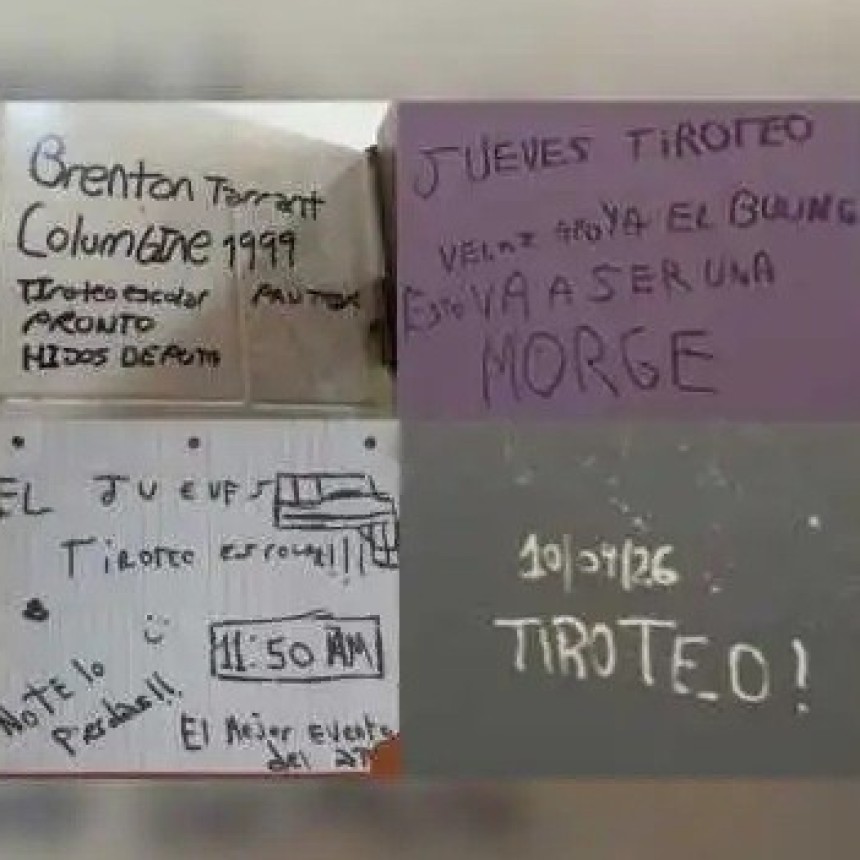 Brenton Tarrant
Columbine 1999
Tiroteo escolar
PRONTO
HIJOS DE PUTA
JUEVES TIROTEO
APOYA EL BULING
Esto VA A SER UNA
MORGE
EL JUEVES
TIROTEO escolar!!!
11:50 AM
NOTE lo
pierdas!!
El Mejor Evento
del
10/04/26
TIROTEO!